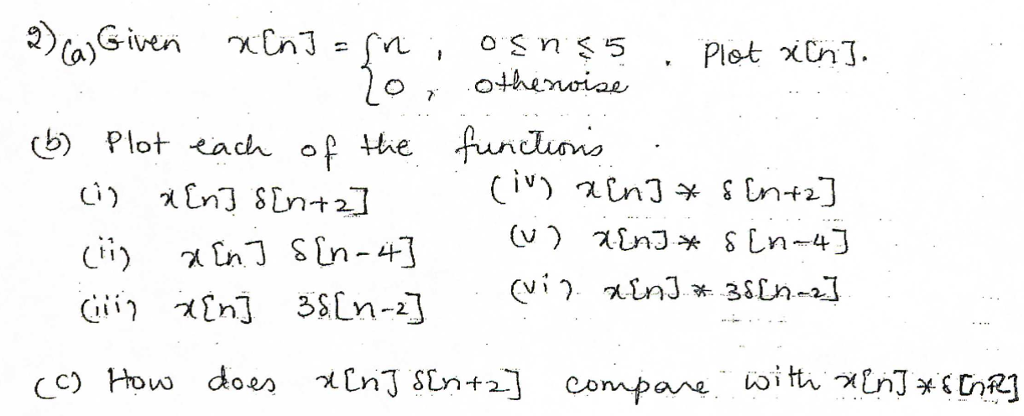 2) (a) Given x[n] = { n , 0 ≤ n ≤ 5 . Plot x[n].
0 , otherwise
(b) Plot each of the functions.
(i) x[n] δ[n+2] (iv) x[n] * δ[n+2]
(ii) x[n] δ[n-4] (v) x[n] * δ[n-4]
(iii) x[n] 3δ[n-2] (vi) x[n] * 3δ[n-2]
(c) How does x[n] δ[n+2] compare with x[n] * δ[n+2]